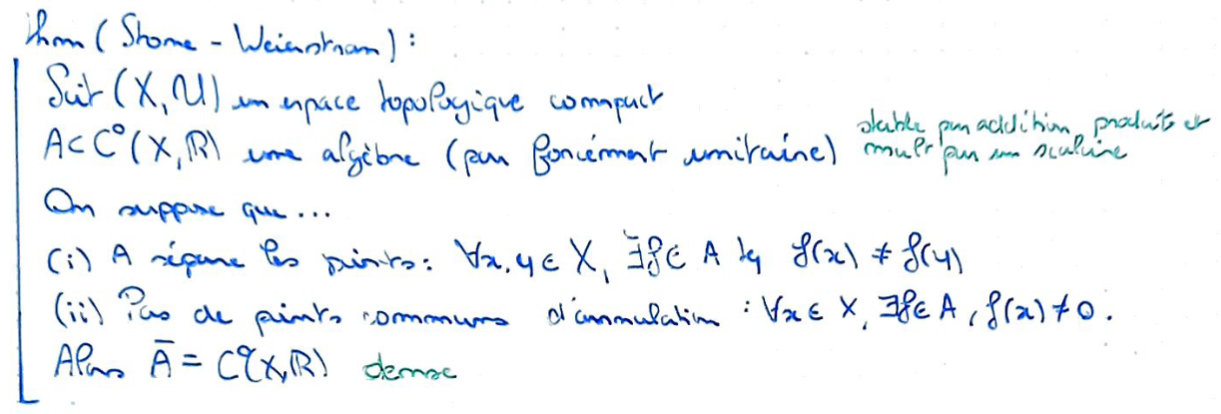 Thm (Stone - Weierstrass) :
Soit (X, U) un espace topologique compact
A ⊂ C⁰(X, ℝ) une algèbre (pas forcément unitaire) stable par addition, produits et
mult par un scalaire
On suppose que ...
(i) A sépare les points : ∀x, y ∈ X, ∃f ∈ A tq f(x) ≠ f(y)
(ii) Pas de points communs d'annulation : ∀x ∈ X, ∃f ∈ A, f(x) ≠ 0.
Alors Ā = C⁰(X, ℝ) dense